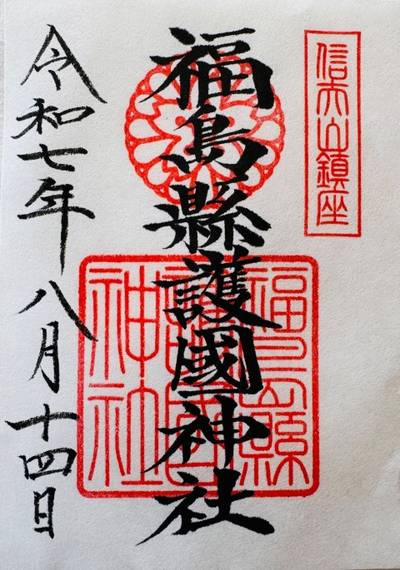 信夫山鎮座
福島縣護國神社
福島縣
護國
神社
令和七年八月十四日